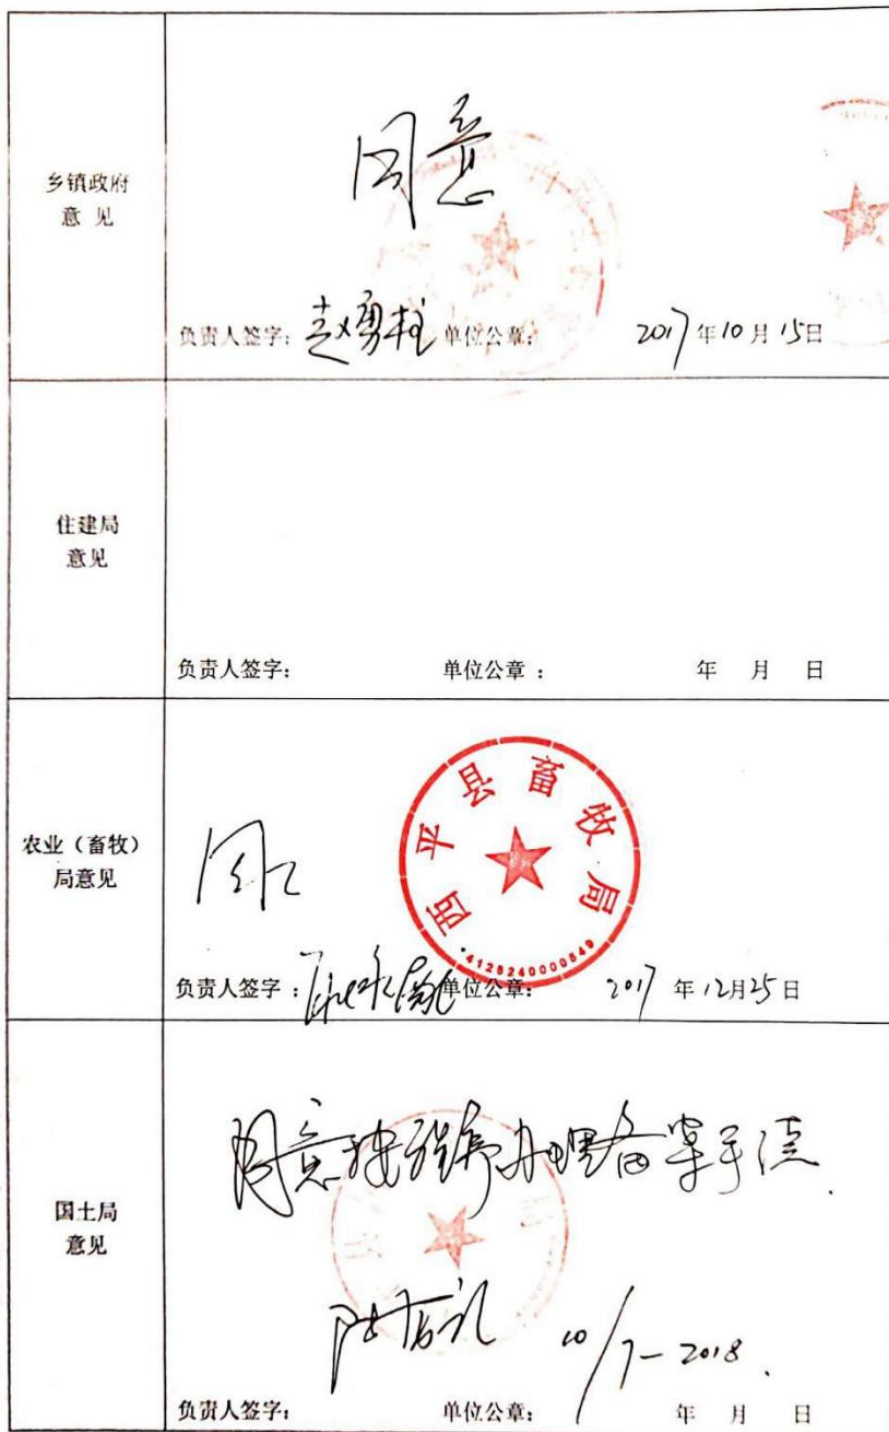 乡镇政府
意 见
同意
负责人签字: 赵勇柱 单位公章: 2017年10月15日
住建局
意见
负责人签字: 单位公章 : 年 月 日
农业(畜牧)
局意见
同意
西平县畜牧局
4128240000849
负责人签字 : 单位公章: 2017年12月25日
国土局
意见
同意按程序办理备案手续.
10/7-2018.
负责人签字: 单位公章: 年 月 日